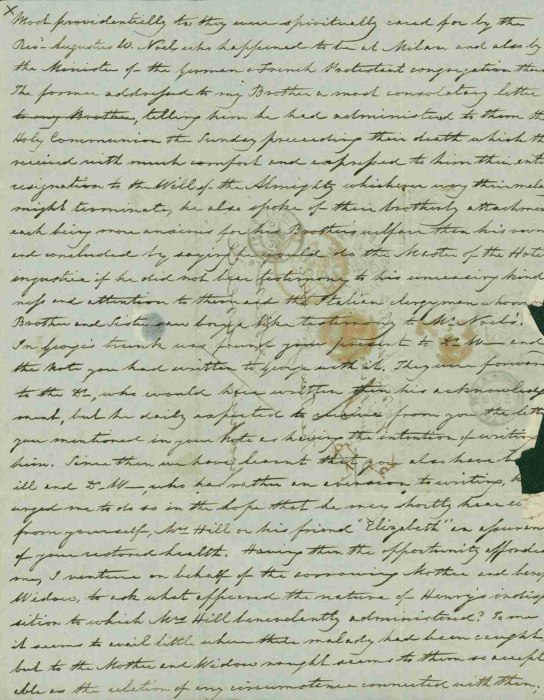 x Most providentially too they were spiritually cared for by the
Revd Augustus W. Noel who happened to be at Milan and also by
the Minister of the German & French Protestant congregation ther
The former addressed to my Brother a most consolatory letter
to my Brother, telling him he had administered to them th
Holy Communion the Sunday preceeding their death which th
received with much comfort and expressed to him their enti
resignation to the Will of the Almighty whichever way their mala
might terminate, he also spoke of their brotherly attachmen
each being more anxious for his Brothers welfare than his own
and concluded by saying he would do the Master of the Hote
injustice if he did not bear testimony to his unceasing kind
ness and attention to them and the Italian clergyman whom
Brother and Sister saw bore a like testimony to Mr Noel's.
In George's trunk was found your present to Dr W— and
the Note you had written to George with it. They were forwar
to the Dr, who would have written then his acknowledg
ment, but he daily expected to receive from you the lette
you mentioned in your Note as having the intention of writin
him. Since then we have learnt that you also have be
ill and Dr W—, who has rather an aversion to writing, h
urged me to do so in the hope that he may shortly hear ei
from yourself, Mrs Hill or his friend "Elizabeth" an assuran
of your restored health. Having then the opportunity afforde
me, I venture on behalf of the sorrowing Mother and
Widow, to ask what appeared the nature of Henry's indis
sition to which Mrs Hill benevolently administered? To me
it seems to avail little where their malady had been caught
but to the Mother and Widow nought seems to them so accept
able as the relation of any circumstance connected with them.